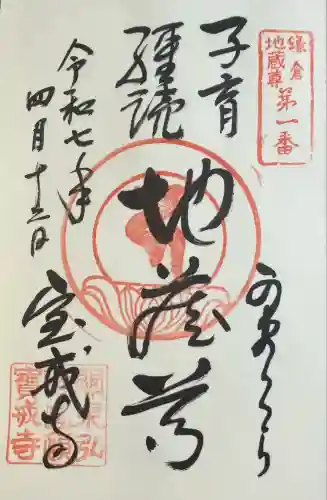 鎌倉
地蔵尊
第一番
かまくら
子育
経読
地蔵尊
令和七年
四月十二日
宝戒寺
寶戒寺